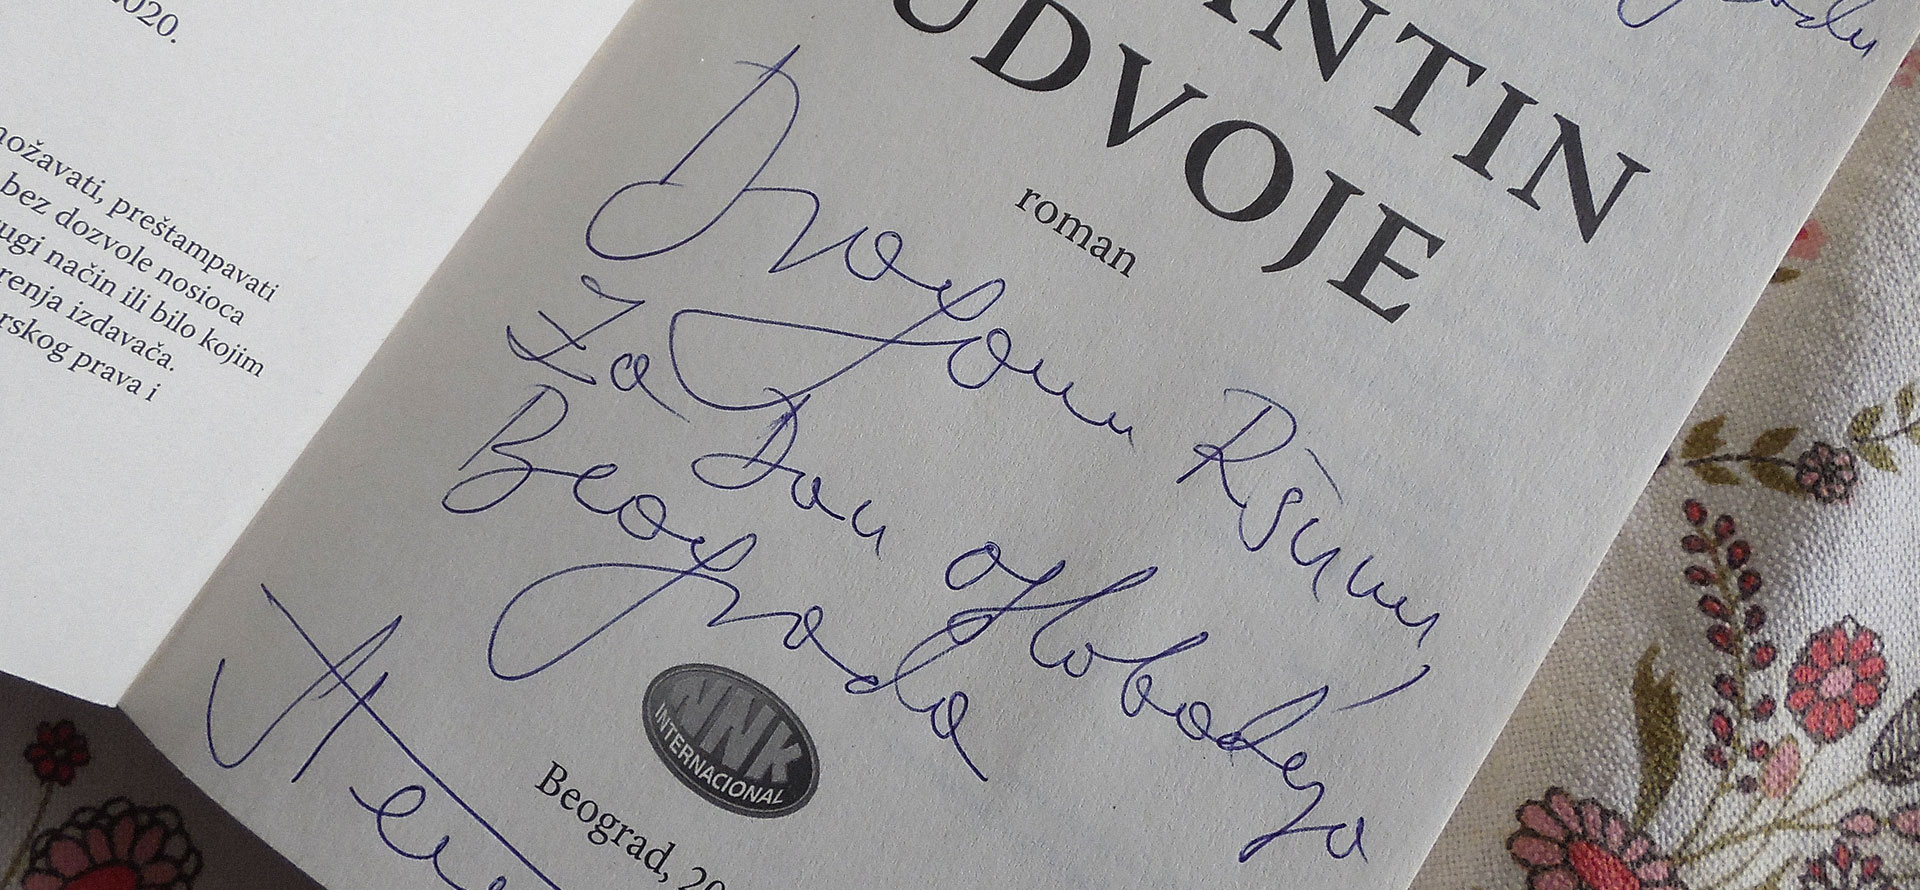 2020.
nožavati, preštampavati
bez dozvole nosioca
ugi način ili bilo kojim
renja izdavača.
rskog prava i
NTIN
UDVOJE
roman
Dragom
Za Dan oslobođenja
Beograda
NNK
INTERNACIONAL
Beograd, 20